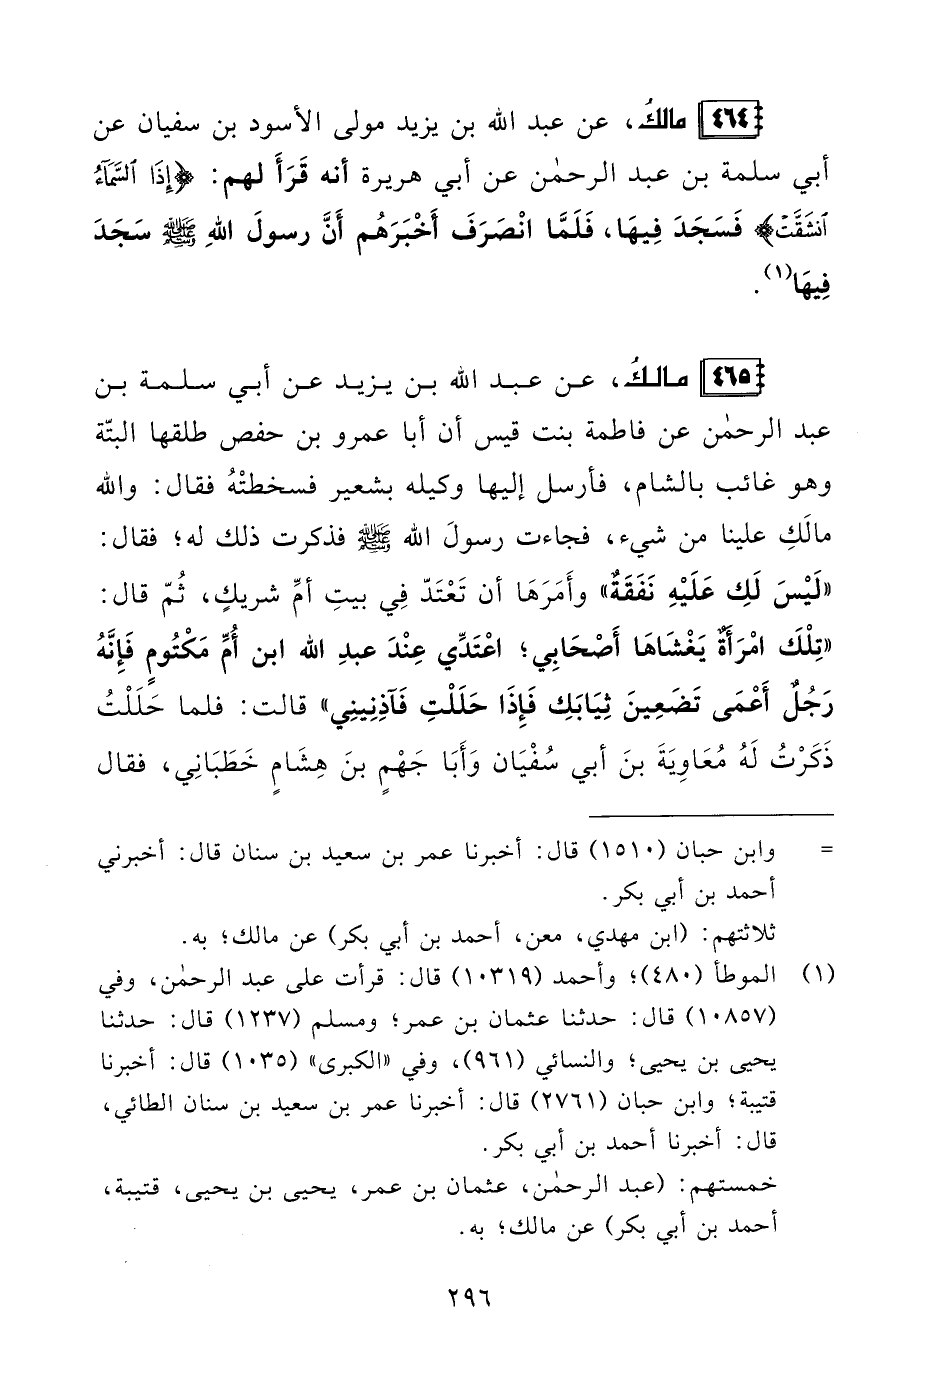 ٤٦٤ مالكُ، عن عبد الله بن يزيد مولى الأسود بن سفيان عن
أبي سلمة بن عبد الرحمٰن عن أبي هريرة أنه قَرَأَ لهم: ﴿إِذَا ٱلسَّمَآءُ
ٱنشَقَّتْ﴾ فَسَجَدَ فِيهَا، فَلَمَّا انْصَرَفَ أَخْبَرَهُم أَنَّ رسولَ اللهِ ﷺ سَجَدَ
فِيهَا(١).
٤٦٥ مالكُ، عن عبد الله بن يزيد عن أبي سلمة بن
عبد الرحمٰن عن فاطمة بنت قيس أن أبا عمرو بن حفص طلقها البتّة
وهو غائب بالشام، فأرسل إليها وكيله بشعير فسخطتْهُ فقال: والله
مالَكِ علينا من شيء، فجاءت رسولَ الله ﷺ فذكرت ذلك له؛ فقال:
«لَيْسَ لَكِ عَلَيْهِ نَفَقَةٌ» وأَمَرَهَا أن تَعْتَدّ فِي بيتِ أمِّ شريكٍ، ثُمّ قال:
«تِلْكَ امْرَأَةٌ يَغْشَاهَا أَصْحَابِي؛ اعْتَدِّي عِنْدَ عبدِ الله ابن أُمِّ مَكْتُومٍ فَإِنَّهُ
رَجُلٌ أَعْمَى تَضَعِينَ ثِيَابَكِ فَإِذَا حَلَلْتِ فَآذِنِينِي» قالت: فلما حَلَلْتُ
ذَكَرْتُ لَهُ مُعَاوِيَةَ بنَ أبي سُفْيَان وَأَبَا جَهْمٍ بنَ هِشَامٍ خَطَبَانِي، فقال
= وابن حبان (١٥١٠) قال: أخبرنا عمر بن سعيد بن سنان قال: أخبرني
أحمد بن أبي بكر.
ثلاثتهم: (ابن مهدي، معن، أحمد بن أبي بكر) عن مالك؛ به.
(١) الموطأ (٤٨٠)؛ وأحمد (١٠٣١٩) قال: قرأت على عبد الرحمٰن، وفي
(١٠٨٥٧) قال: حدثنا عثمان بن عمر؛ ومسلم (١٢٣٧) قال: حدثنا
يحيى بن يحيى؛ والنسائي (٩٦١)، وفي «الكبرى» (١٠٣٥) قال: أخبرنا
قتيبة؛ وابن حبان (٢٧٦١) قال: أخبرنا عمر بن سعيد بن سنان الطائي،
قال: أخبرنا أحمد بن أبي بكر.
خمستهم: (عبد الرحمٰن، عثمان بن عمر، يحيى بن يحيى، قتيبة،
أحمد بن أبي بكر) عن مالك؛ به.
٢٩٦